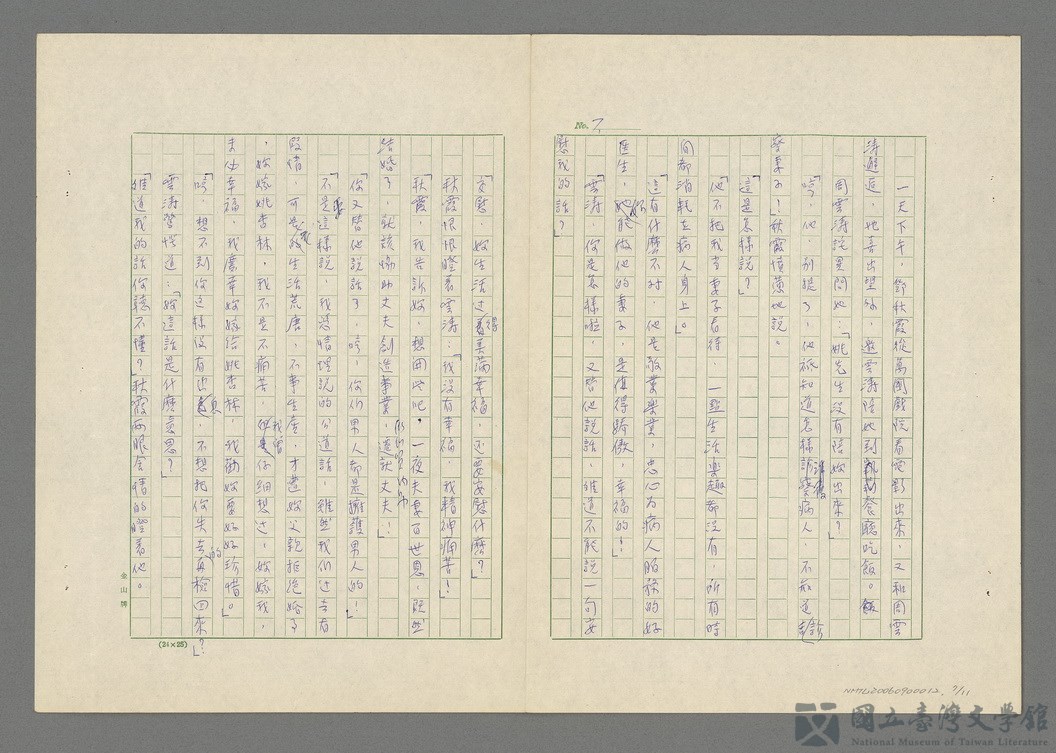 No. 7
一天下午，鄭秋霞從萬國戲院看電影出來，又和周雲
濤邂逅，她喜出望外，邀雲濤陪她到餐廳吃飯。
周雲濤詫異問她：「姚先生沒有陪妳出來？」
「哼，他，別提了，他祇知道怎樣診病人，不知道
妻子！」秋霞憤慨地說。
「這是怎樣說？」
「他不把我當妻子看待，一點生活樂趣都沒有，所有時
間都消耗在病人身上。」
「這有什麼不好，他是敬業樂業，忠心為病人服務的好
醫生，妳能做他的妻子，是值得驕傲，幸福的！」
「雲濤，你是怎樣啦，又替他說話，難道不能說一句安
慰我的話？」
「安慰，妳生活過得美滿幸福，還要安慰什麼？」
秋霞恨恨瞪着雲濤：「我沒有幸福，我精神痛苦！」
「秋霞，我告訴妳，想開些吧，一夜夫妻百世恩，既然
結婚了，就該協助丈夫創造事業，遷就丈夫！」
「你又替他說話了，哼，你們男人都是擁護男人的！」
「不是這樣說，我是憑情理說的公道話，雖然我們過去有
段情，可是我生活荒唐，不事生產，才遭妳父親拒絕婚事
，妳嫁姚杏林，我不是不痛苦，我曾仔細想過，妳嫁我，
未必幸福，我慶幸妳嫁給姚杏林，我勸妳要好好珍惜。」
「哼，想不到你這樣沒有出息，不想把你失去的再檢回來？」
雲濤驚愕道：「妳這話是什麼意思？」
「難道我的話你聽不懂？」秋霞兩眼含情的瞪着他。
金山牌
(24×25)
NMTL20060900012. 7/11
國立臺灣文學館
National Museum of Taiwan Literature